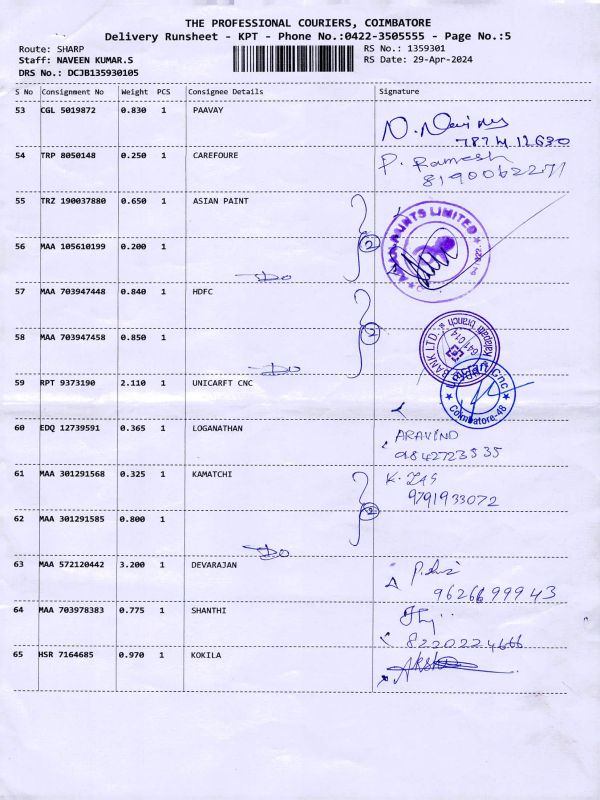 THE PROFESSIONAL COURIERS, COIMBATORE
Delivery Runsheet - KPT - Phone No.:0422-3505555 - Page No.:5
Route: SHARP RS No.: 1359301
Staff: NAVEEN KUMAR.S RS Date: 29-Apr-2024
DRS No.: DCJB135930105
S No Consignment No Weight PCS Consignee Details Signature
53 CGL 5019872 0.830 1 PAAVAY
54 TRP 8050148 0.250 1 CAREFOURE P. Ramesh
8190062271
55 TRZ 190037880 0.650 1 ASIAN PAINT
2
56 MAA 105610199 0.200 1
Do
57 MAA 703947448 0.840 1 HDFC
2
58 MAA 703947458 0.850 1
BANK LTD. Kalapatti branch 641 014
Do
59 RPT 9373190 2.110 1 UNICARFT CNC
Cnc Coimbatore-48
60 EDQ 12739591 0.365 1 LOGANATHAN ARAVIND
9842723535
61 MAA 301291568 0.325 1 KAMATCHI
9791933072
2
62 MAA 301291585 0.800 1
Do
63 MAA 572120442 3.200 1 DEVARAJAN
9626699943
64 MAA 703978383 0.775 1 SHANTHI
8220224666
65 HSR 7164685 0.970 1 KOKILA